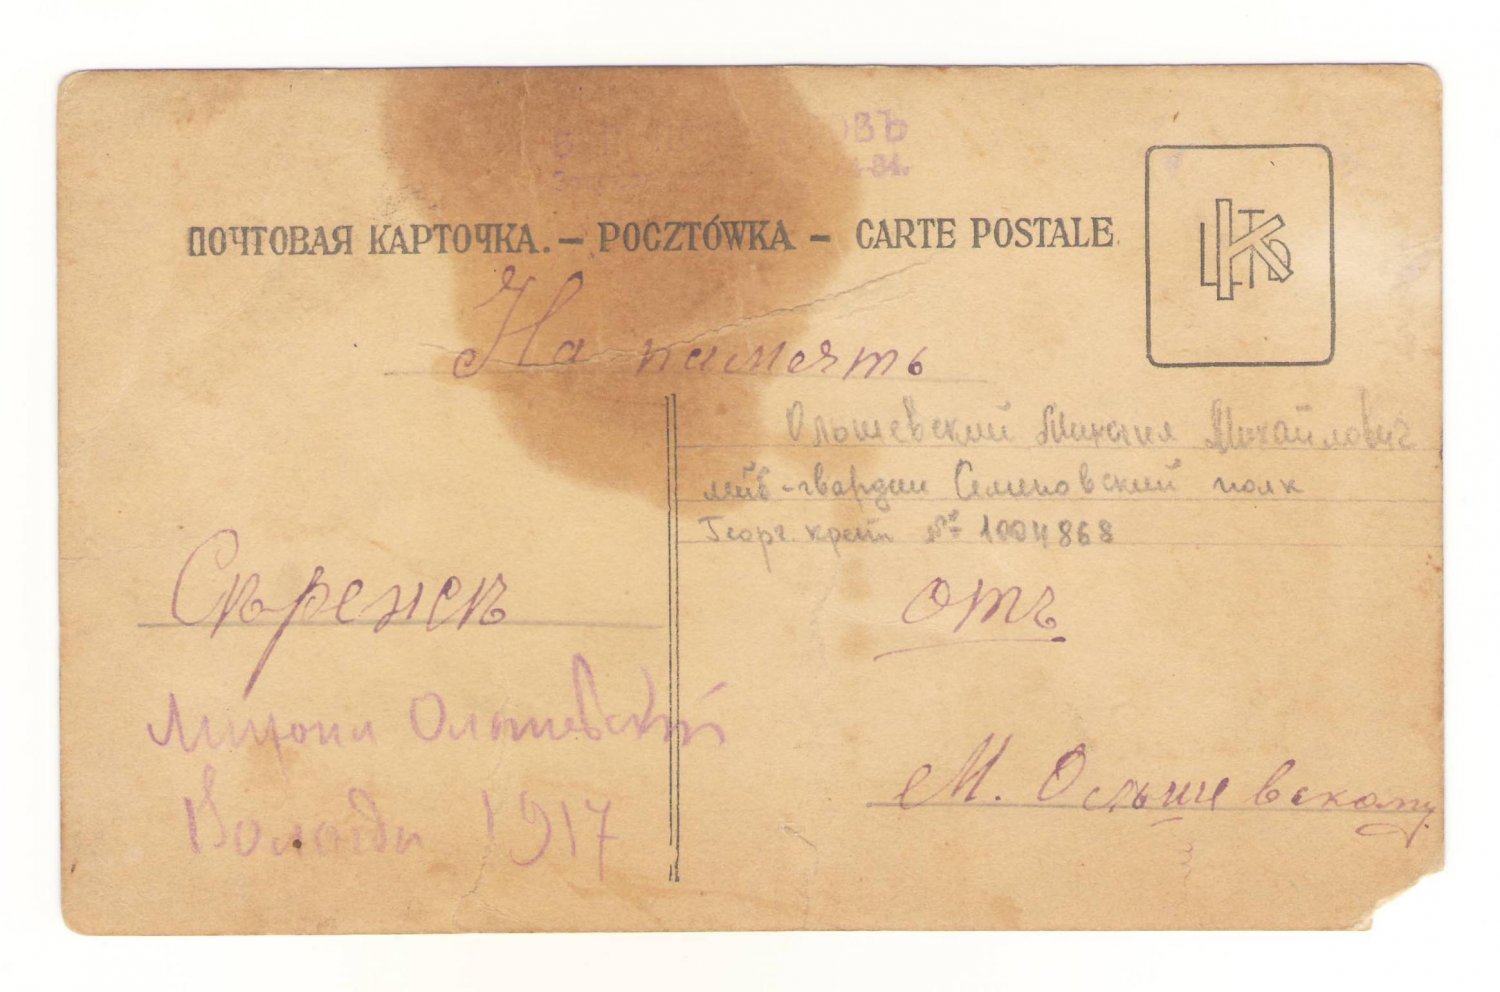 ОВЪ
ПОЧТОВАЯ КАРТОЧКА. – POCZTÓWKA – CARTE POSTALE
На память
Ольшевский Михаил Михайлович
лейб-гвардии Семеновский полк
Георг. крест № 1004868
отъ
М. Ольшевскому
Ольшевский
1917